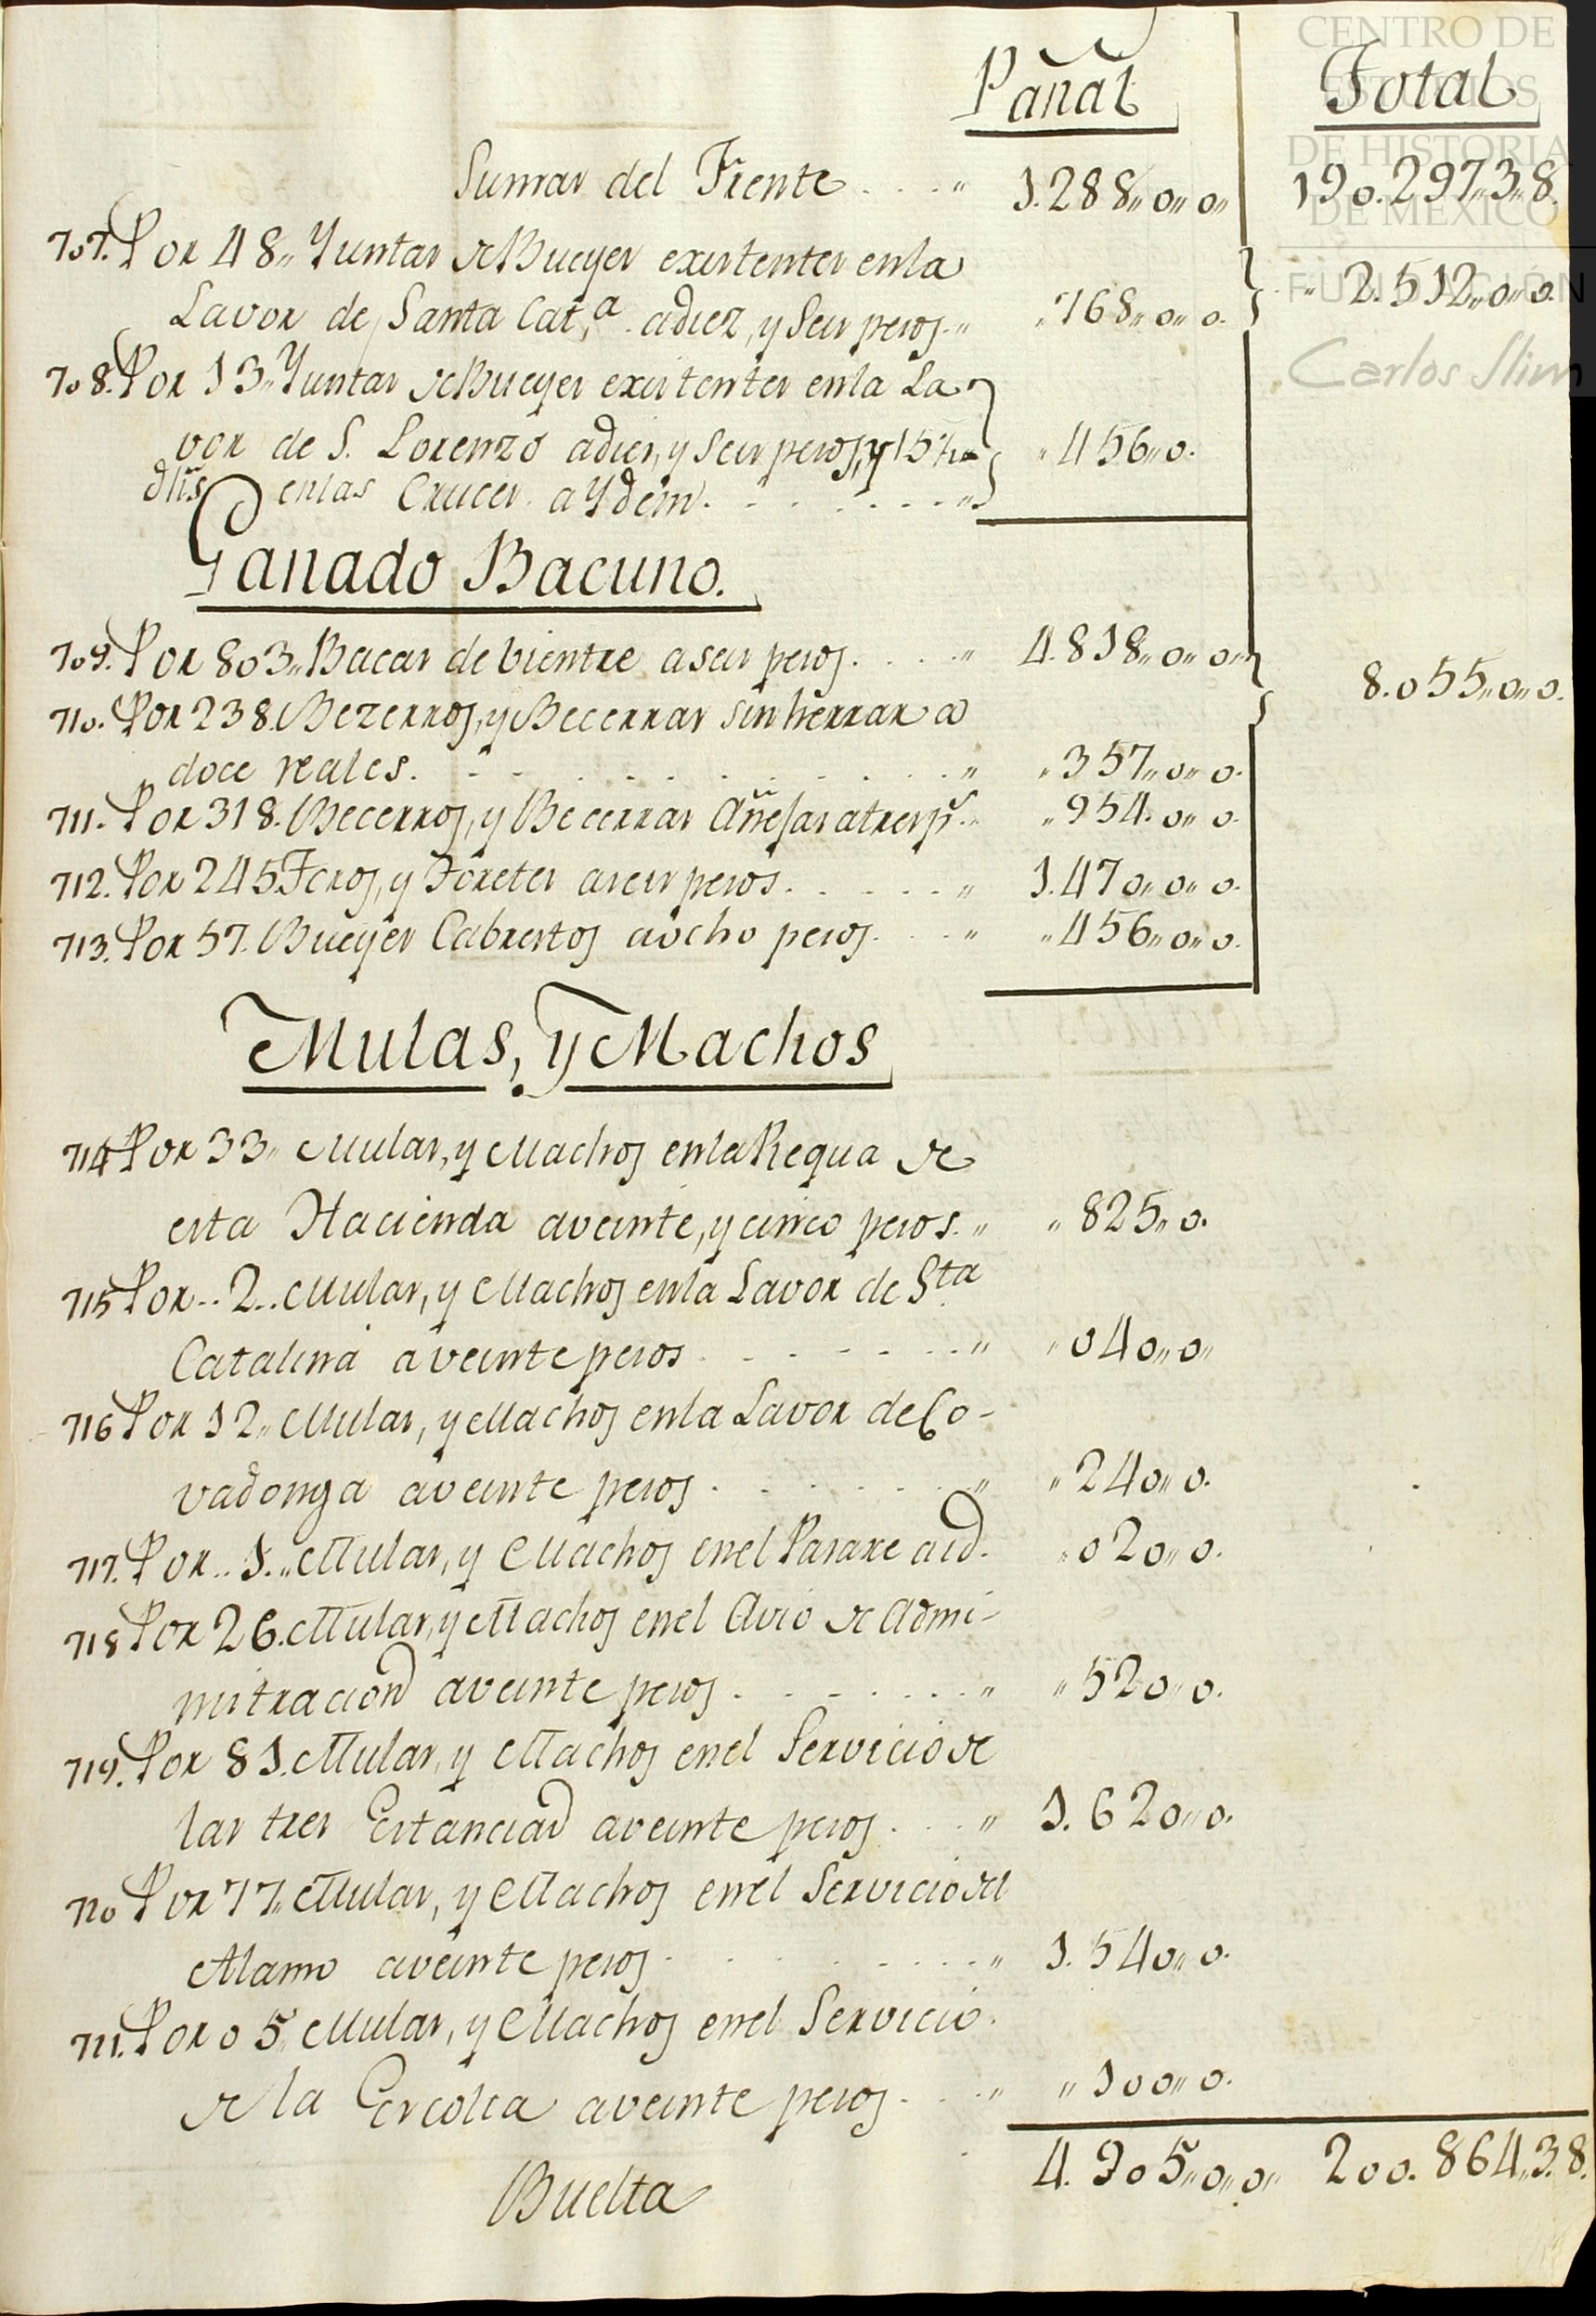 CENTRO DE
ESTUDIOS
DE HISTORIA
DE MÉXICO
FUNDACIÓN
Carlos Slim
Pañal Total
Sumas del Frente . . . „ 1.288„ o„ o„ 190.297„3„8.
707. Por 48„ Yuntas de Bueyes existentes en la
Lavor de Santa Cat.ª a diez, y Seis pesos. „ „ 768„ o„ o. 2.512„ o„ o.
708. Por 13„ Yuntas de Bueyes existentes en la La-
vor de S. Lorenzo a dies, y Seis pesos, y 15 „ 456„ o.
en las Cruces a Ydem. . . . . . . „
Ganado Bacuno.
709. Por 803„ Bacas de bientre a seis pesos. . . . „ 4.818„ o„ o„ 8.055„ o„ o.
710. Por 238. Bezerros, y Becerras sin herrar a
doce reales. . . . . . . . . . „ „ 357„ o„ o.
711. Por 318. Becerros, y Becerras Añejas a tres p.s „ 954. o„ o.
712. Por 245 Toros, y Toretes a seis pesos. . . . . . „ 1.470„ o„ o.
713. Por 57. Bueyes Cabrestos a ocho pesos. . . „ „ 456„ o„ o.
Mulas, y Machos
714 Por 33„ Mulas, y Machos en la Requa de
esta Hacienda a veinte, y cinco pesos. „ „ 825„ o.
715 Por . . 2 . . Mulas, y Machos en la Lavor de S.ta
Catalina a veinte pesos . . . . . . . „ „ 040„ o„
716 Por 12„ Mulas, y Machos en la Lavor de Co-
vadonga a veinte pesos . . . . . . „ „ 240„ o.
717. Por . . 1. „ Mulas, y Machos en el Paraxe a id. „ 020„ o.
718 Por 26. Mulas, y Machos en el Avio de Admi-
nistracion a veinte pesos . . . . . . . „ „ 520„ o.
719. Por 81. Mulas, y Machos en el Servicio de
las tres Estancias a veinte pesos . . . „ 1.620„ o.
720 Por 77„ Mulas, y Machos en el Servicio del
Alamo a veinte pesos . . . . . . . . „ 1.540„ o.
721. Por 05„ Mulas, y Machos en el Servicio.
de la Escolta a veinte pesos . . . „ „ 100„ o.
4.905„ o„ o„ 200.864„3„8.
Buelta